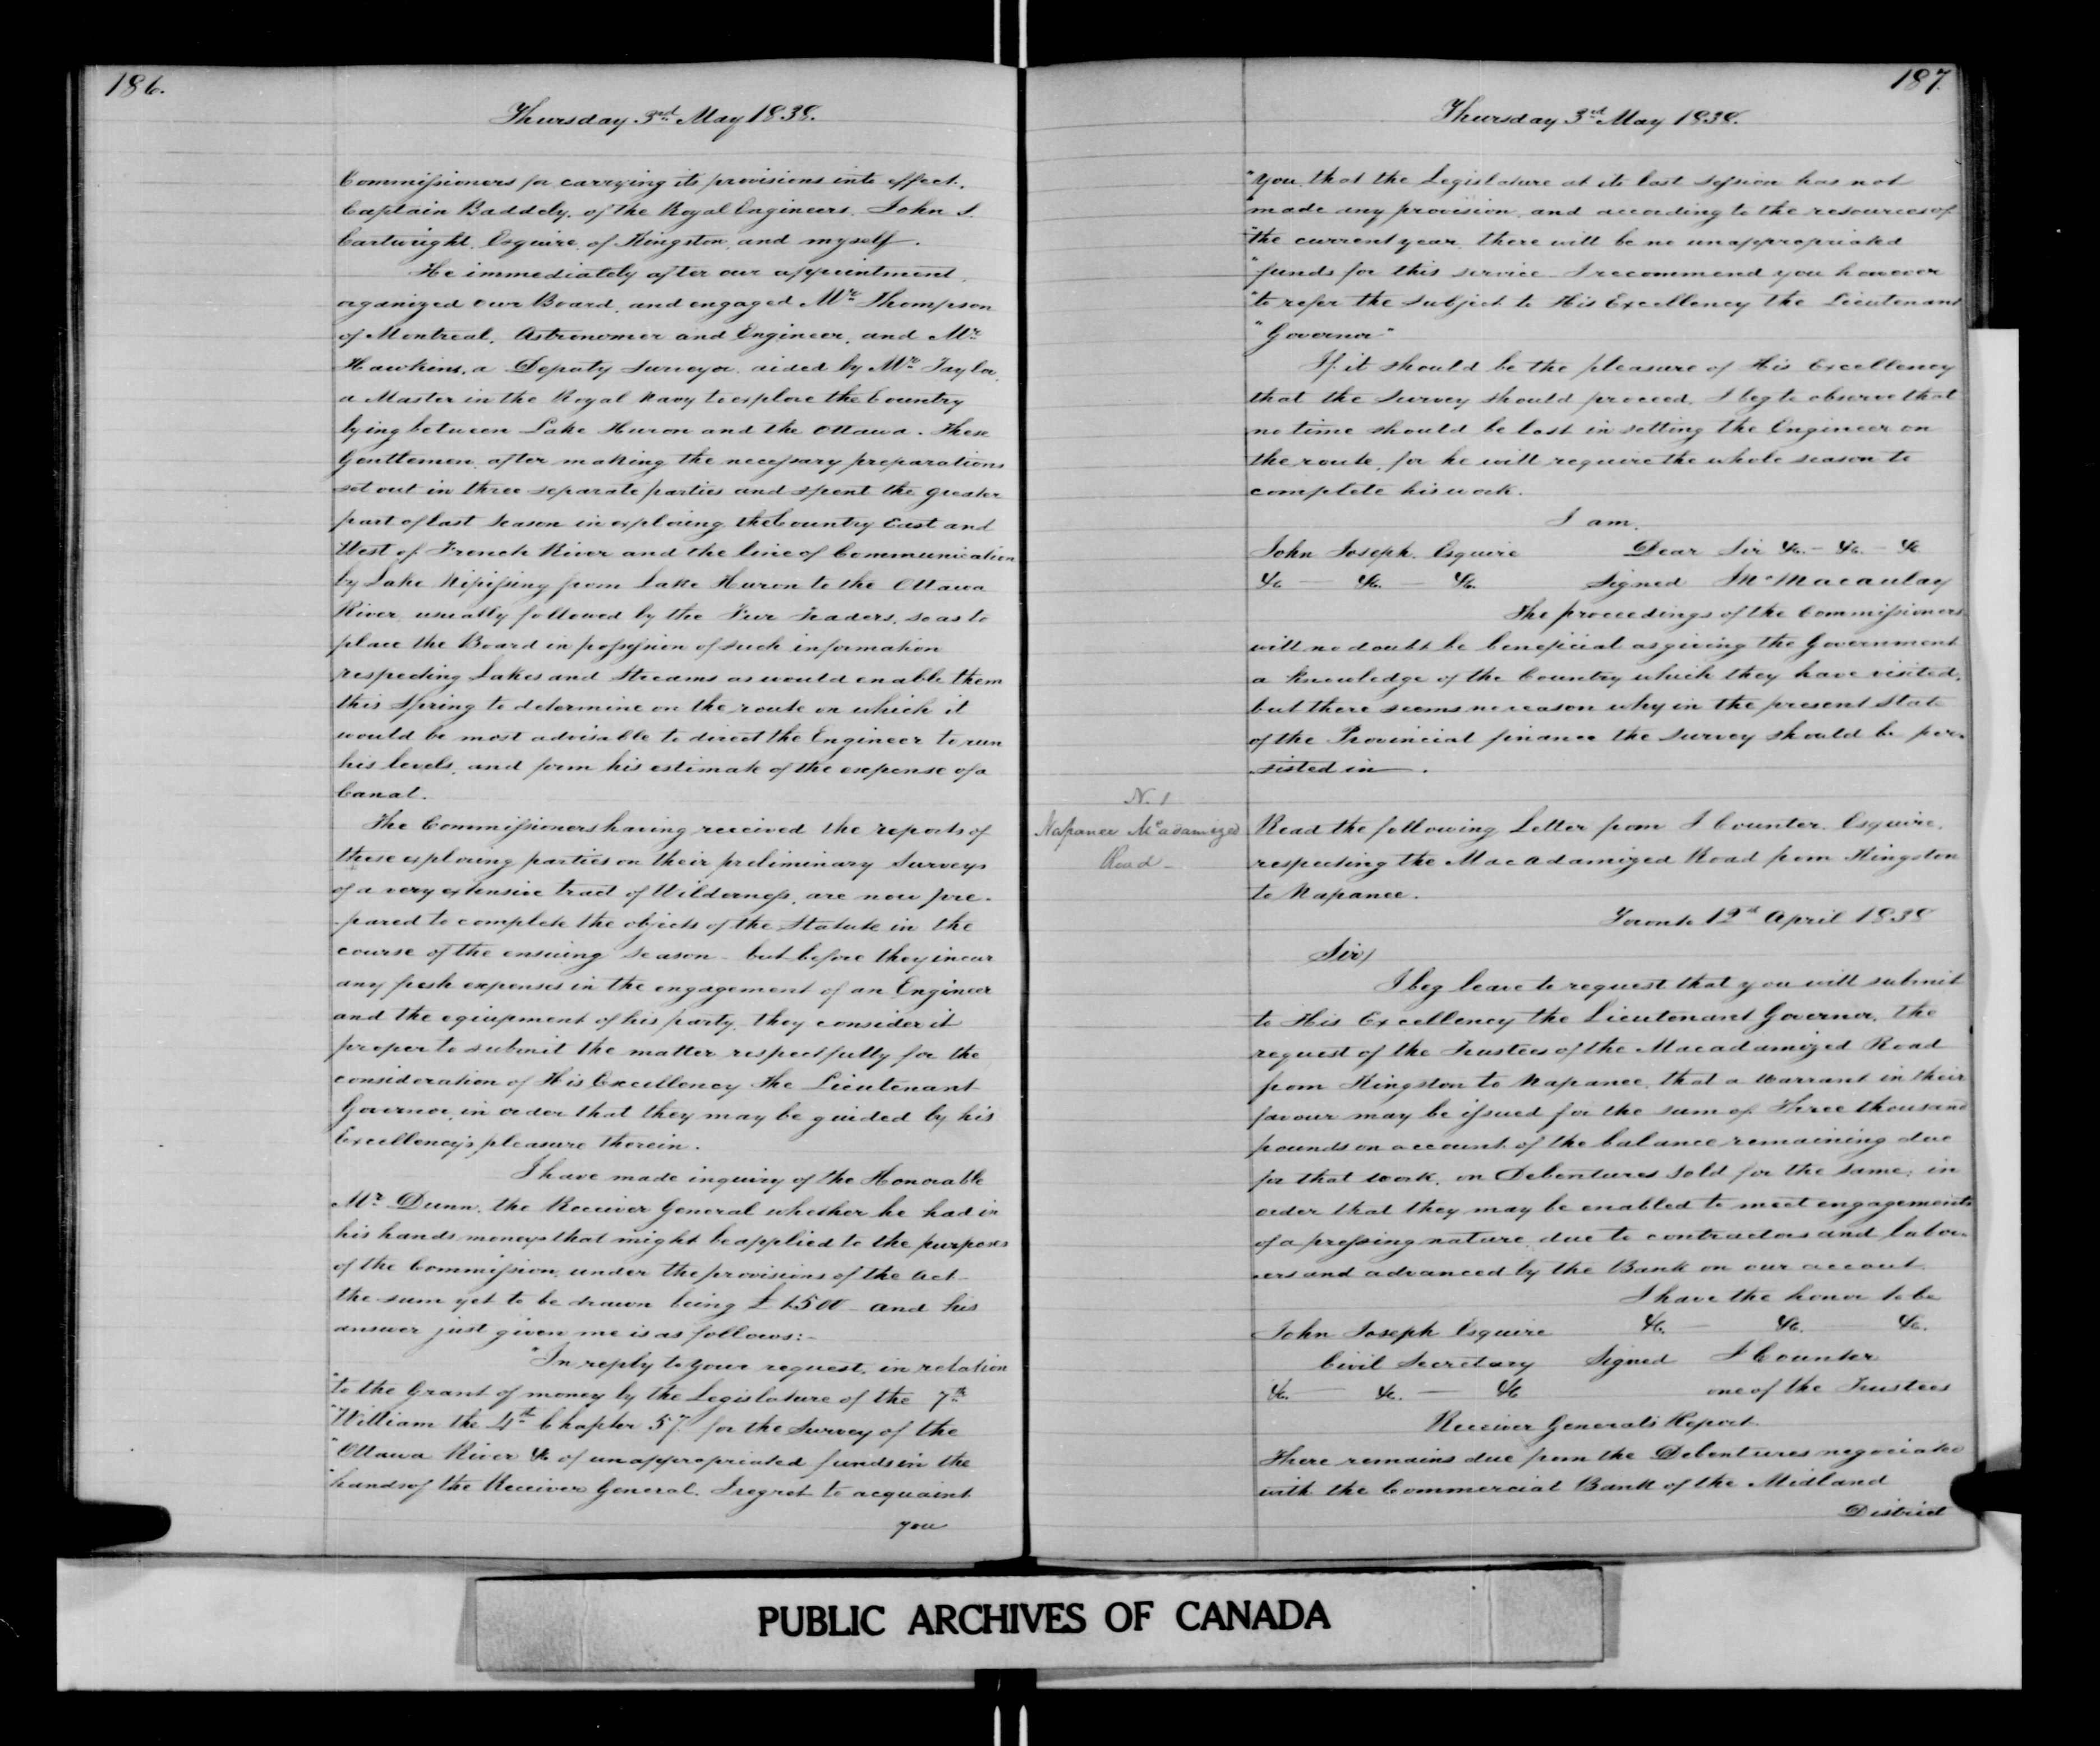 186.
Thursday 3rd May 1838.
Commissioners for carrying its provisions into effect.
Captain Baddely, of the Royal Engineers, John S.
Cartwright, Esquire, of Kingston, and myself.
We immediately after our appointment,
organized our Board, and engaged Mr. Thompson
of Montreal, Astronomer and Engineer, and Mr.
Hawkins, a Deputy Surveyor aided by Mr. Taylor,
a Master in the Royal Navy to explore the Country
lying between Lake Huron and the Ottawa. These
Gentlemen, after making the necessary preparations
set out in three separate parties and spent the greater
part of last Season in exploring the Country East and
West of French River and the line of Communication
by Lake Nipissing from Lake Huron to the Ottawa
River, usually followed by the Fur Traders, so as to
place the Board in possession of such information
respecting Lakes and Streams as would enable them
this Spring to determine on the route on which it
would be most advisable to direct the Engineer to run
his levels, and form his estimate of the expense of a
Canal.
The Commissioners having received the reports of
these exploring parties on their preliminary Surveys
of a very extensive tract of Wilderness, are now pre-
-pared to complete the objects of the Statute in the
course of the ensuing Season - but before they incur
any fresh expenses in the engagement of an Engineer
and the equipment of his party, they consider it
proper to submit the matter respectfully for the
consideration of His Excellency the Lieutenant
Governor, in order that they may be guided by his
Excellency's pleasure therein.
I have made inquiry of the Honorable
Mr. Dunn, the Receiver General whether he had in
his hands moneys that might be applied to the purposes
of the Commission, under the provisions of the Act -
the sum yet to be drawn being £1500 - and his
answer just given me is as follows:-
"In reply to your request, in relation
"to the Grant of money by the Legislature of the 7th
"William the 4th Chapter 57 for the Survey of the
"Ottawa River &c of unappropriated funds in the
"hands of the Receiver General. I regret to acquaint
you
187.
Thursday 3rd May 1838.
"you, that the Legislature at its last session has not
"made any provision, and according to the resources of
"the current year, there will be no unappropriated
"funds for this service - I recommend you however
"to refer the subject to His Excellency the Lieutenant
"Governor"
If it should be the pleasure of His Excellency
that the Survey should proceed, I beg to observe that
no time should be lost in setting the Engineer on
the route, for he will require the whole season to
complete his work.
I am,
John Joseph, Esquire Dear Sir &c. - &c. - &c
&c - &c. - &c. Signed Macaulay
The proceedings of the Commissioners
will no doubt be beneficial as giving the Government
a knowledge of the Country which they have visited,
but there seems no reason why in the present State
of the Provincial finance the Survey should be per-
-sisted in.
N. 1
Napanee McAdamized
Road -
Read the following Letter from J Counter, Esquire,
respecting the MacAdamized Road from Kingston
to Napanee.
Toronto 12th April 1838
Sir/
I beg leave to request that you will submit
to His Excellency the Lieutenant Governor, the
request of the Trustees of the Macadamized Road
from Kingston to Napanee, that a Warrant in their
favour may be issued for the sum of Three thousand
pounds on account of the balance remaining due
for that work, on Debentures Sold for the same, in
order that they may be enabled to meet engagements
of a pressing nature due to contractors and labor-
-ers and advanced by the Bank on our accout.
I have the honor to be
John Joseph Esquire &c. - &c. - &c.
Civil Secretary Signed J Counter
&c. - &c. - &c one of the Trustees
Receiver General's Report.
There remains due from the Debentures negociated
with the Commercial Bank of the Midland
District
PUBLIC ARCHIVES OF CANADA